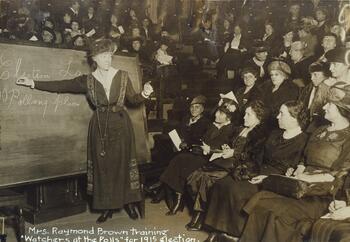 Election L
Polling place
Mrs. Raymond Brown training
"Watchers at the Polls" for 1915 election.